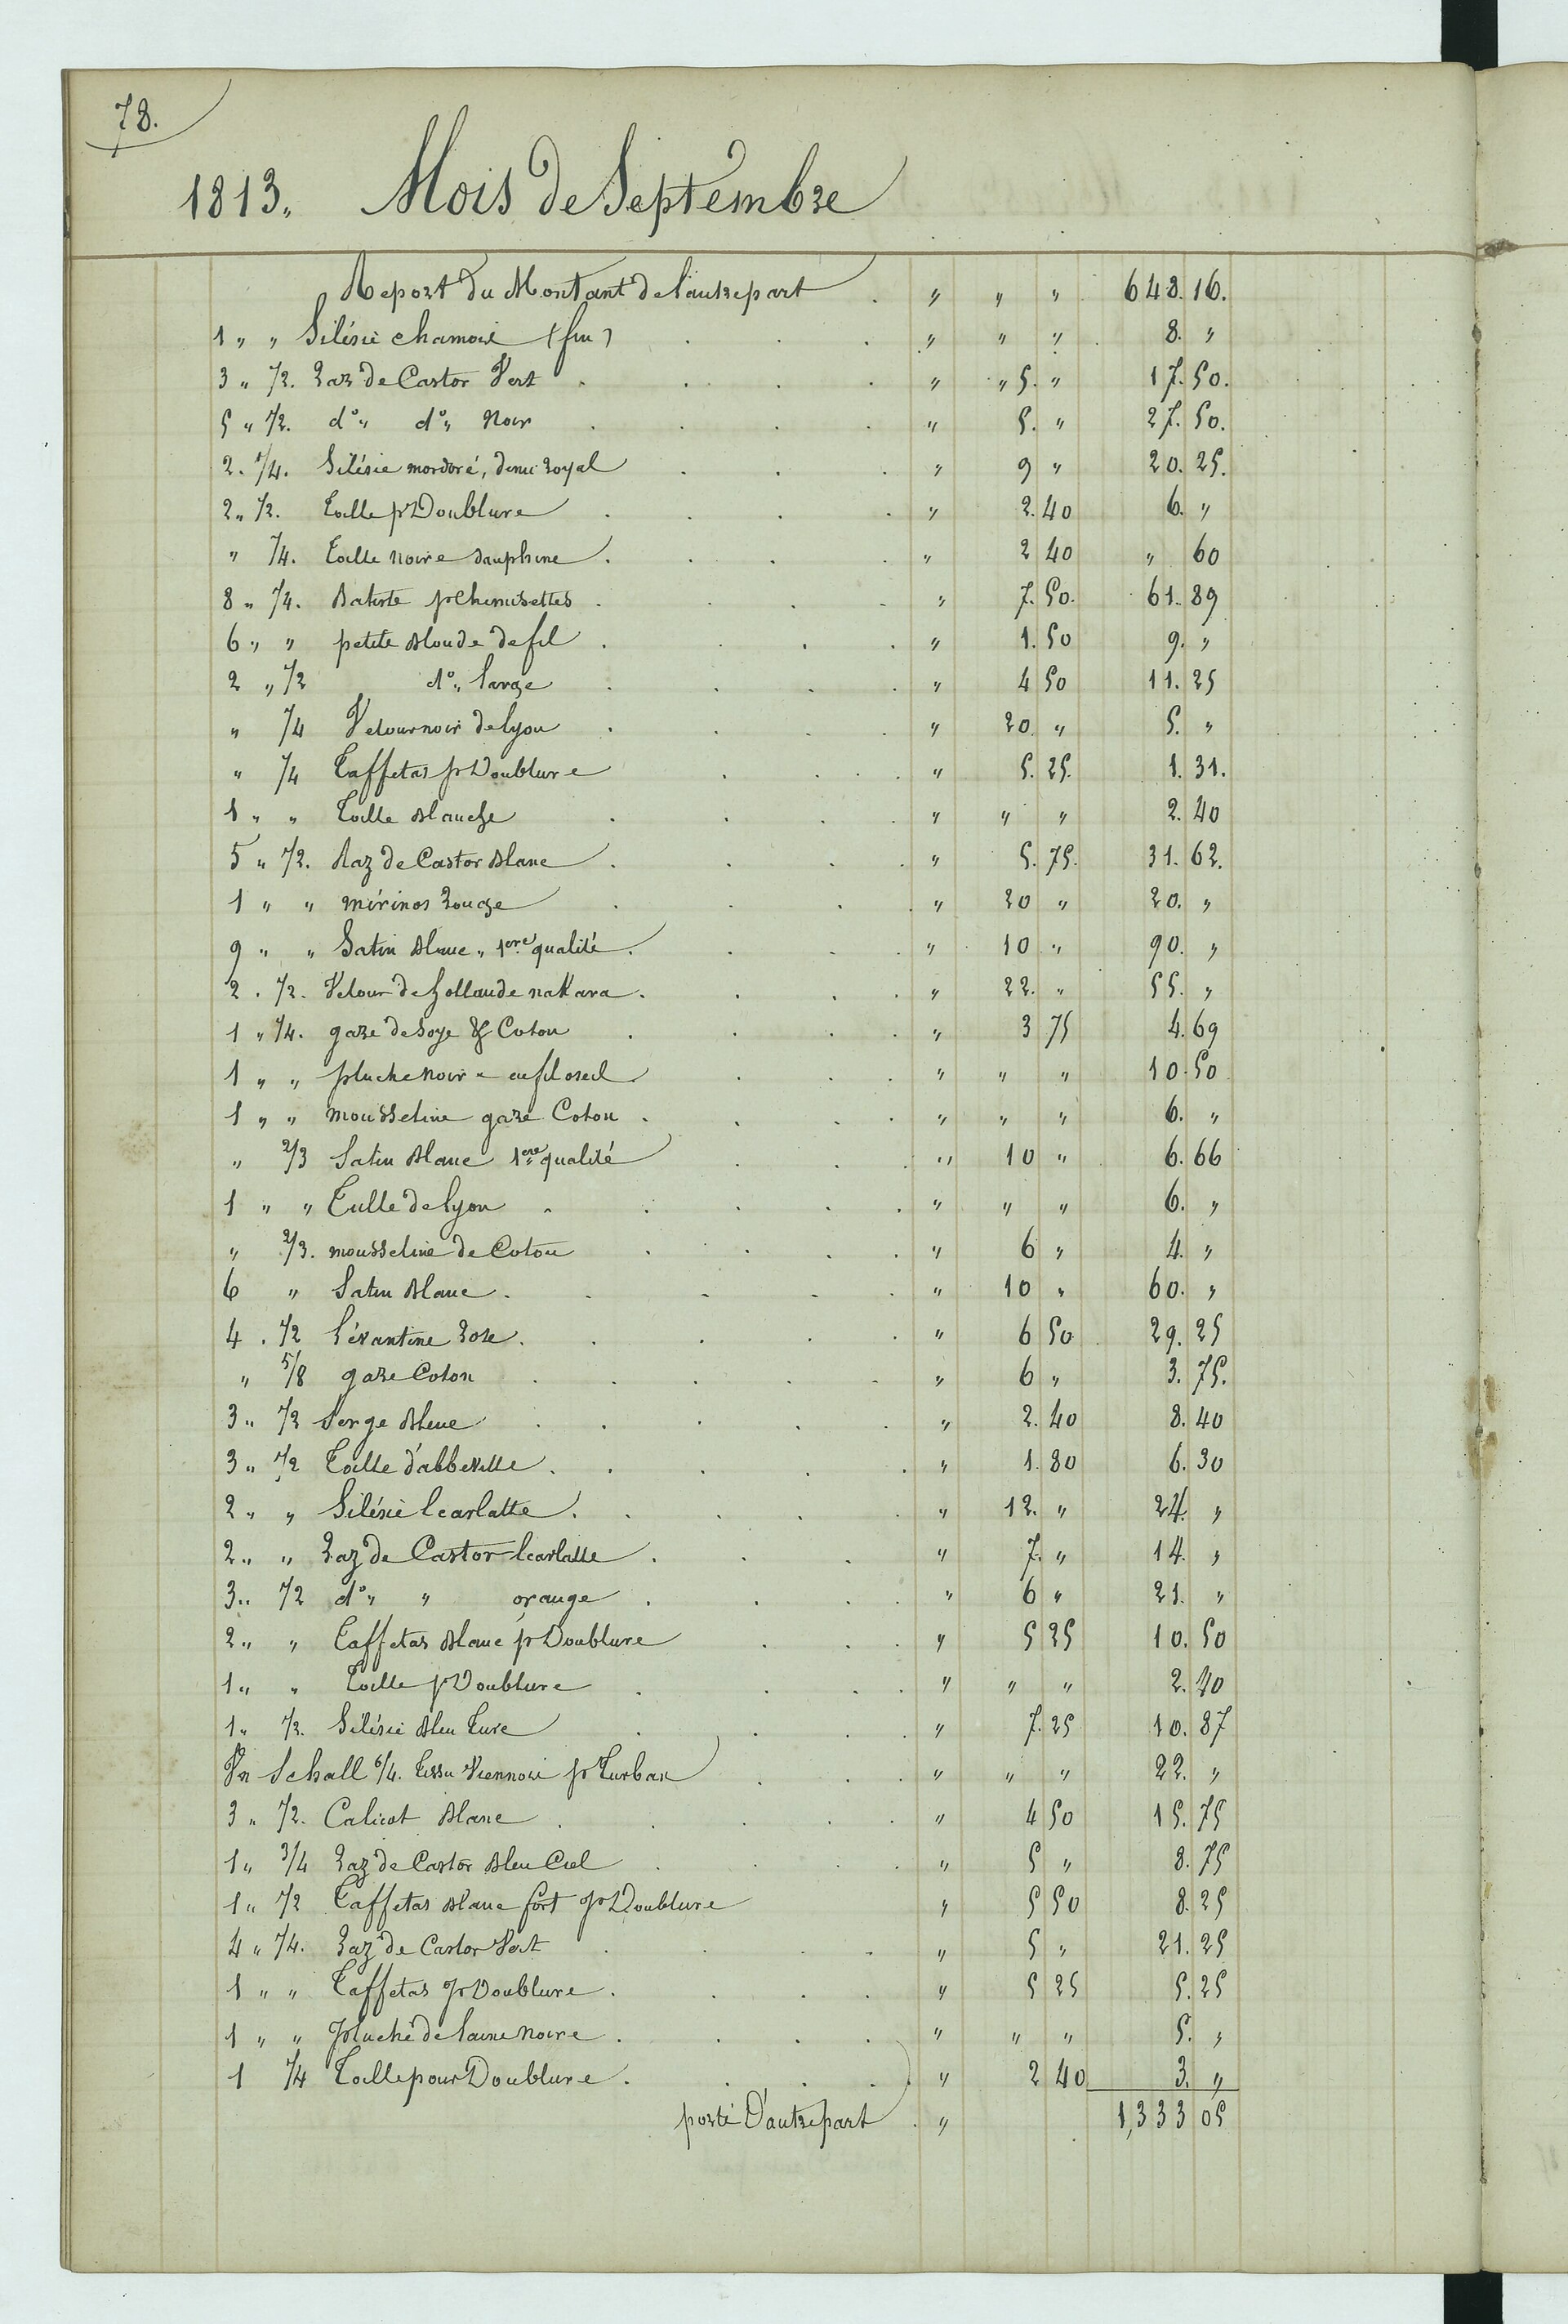 78.
1813. Mois de Septembre
Report du Montant de l'autrepart . " " " 648. 16.
1 " " Silésie chamois (fin) . . . " " " 8. "
3 " 1/2. Raz de Castor Vert . . . . " " 5. " 17. 50.
5 " 1/2. do " do " Noir . . . . " 5. " 27. 50.
2. 1/4. Silésie mordoré, demi royal . . . " 9 " 20. 25.
2 " 1/2. Toille pr Doublure . . . . " 2. 40 6. "
" 1/4. Toille noire dauphine . . . . " 2 40 " 60
8 " 1/4. Batiste pr Chemisettes . . . . " 7. 50. 61. 89
6 " " petite Blonde de fil . . . . " 1. 50 9. "
2 " 1/2 do " large . . . . " 4 50 11. 25
" 1/4 Velour noir de Lyon . . . . " 20. " 5. "
" 1/4 Taffetas pr Doublure . . . " 5. 25. 1. 31.
1 " " Toille Blanche . . . . " " " 2. 40
5 " 1/2. Raz de Castor Blanc . . . . " 5. 75. 31. 62.
1 " " mérinos Rouge . . . . " 20 " 20. "
9 " " Satin Blanc " 1ere qualité . . . . " 10 " 90. "
2 . 1/2. Velour de hollande nakara . . . . " 22. " 55. "
1 " 1/4. gaze de Soye & Coton . . . . " 3 75 4. 69
1 " " pluche noire en filoseil . . . " " " 10. 50
1 " " mousseline gaze Coton . . . . " " " 6. "
" 2/3 Satin Blanc 1ere qualité . . . " 10 " 6. 66
1 " " Tulle de Lyon . . . . . " " " 6. "
" 2/3. mousseline de Coton . . . . " 6 " 4. "
6 " Satin Blanc . . . . . " 10 " 60. "
4 . 1/2 Lévantine Rose . . . . . " 6 50 29. 25
" 5/8 gaze Coton . . . . . " 6 " 3. 75.
3 " 1/2 Serge Bleue . . . . . " 2. 40 8. 40
3 " 1/2 Toille d'abbeville . . . . . " 1. 80 6. 30
2 " " Silésie Ecarlatte . . . . . " 12. " 24. "
2 " " Raz de Castor Ecarlatte . . . " 7. " 14. "
3 " 1/2 do " " orange . . . . " 6 " 21. "
2 " " Taffetas Blanc pr Doublure . . . " 5 25 10. 50
1 " " Toille pr Doublure . . . . " " " 2. 40
1 " 1/2. Silésie Bleu Turc . . . . " 7. 25 10. 87
Un Schall 6/4. tissu Viennois pr Turban . . . " " " 22. "
3 " 1/2. Calicot Blanc . . . . . " 4 50 15. 75
1 " 3/4 Raz de Castor Bleu Ciel . . . . " 5 " 8. 75
1 " 1/2 Taffetas Blanc fort pr Doublure " 5 50 8. 25
4 " 1/4. Raz de Castor Vert . . . . " 5 " 21. 25
1 " " Taffetas pr Doublure . . . . " 5 25 5. 25
1 " " Pluche de laine noire . . . . " " " 5. "
1 1/4 Toille pour Doublure . . . . " 2 40 3. "
porté D'autrepart . " 1,333 05